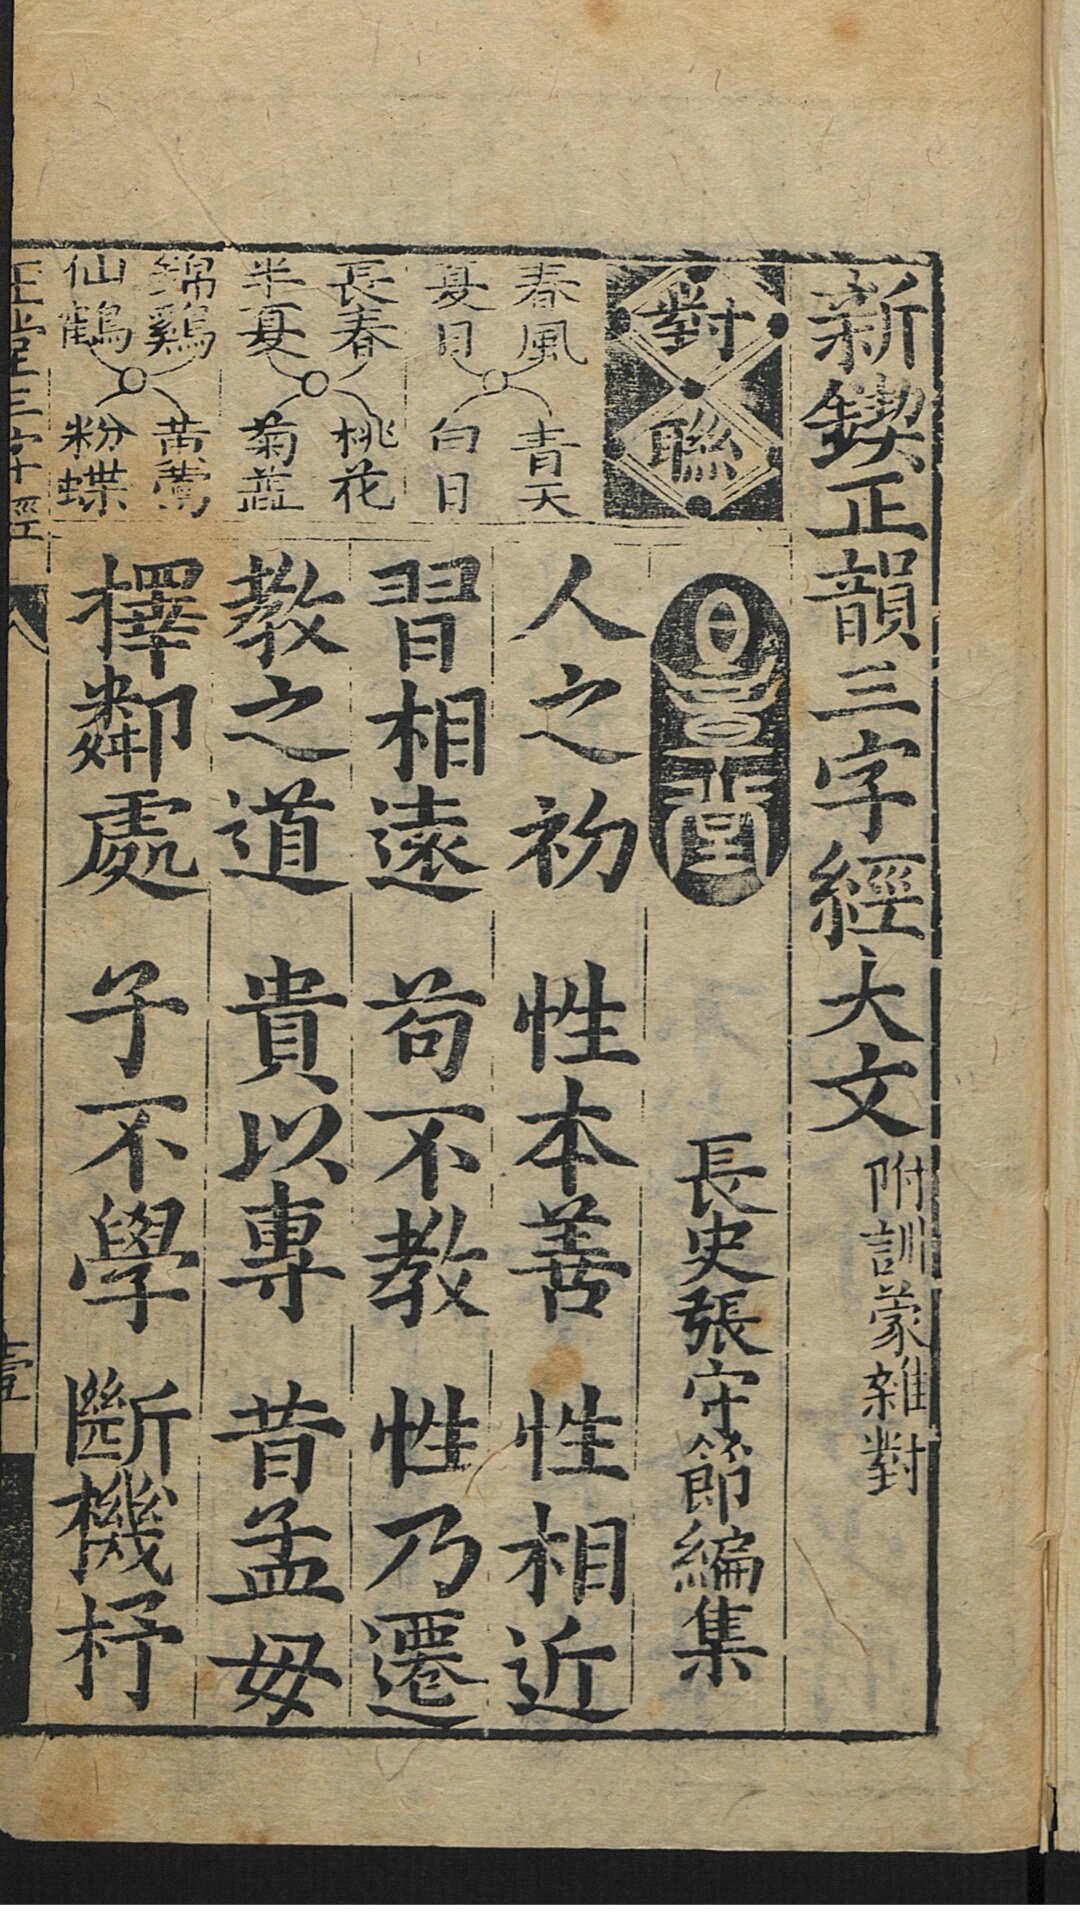 新鍥正韻三字經大文 附訓蒙雜對
對聯
堂
長史張守節編集
春風 青天
夏日 白日
長春 桃花
半夏 菊蕋
錦鷄 黄鶯
仙鶴 粉蝶
人之初 性本善 性相近
習相遠 苟不教 性乃遷
教之道 貴以專 昔孟母
擇鄰處 子不學 斷機杼
正堂三字經 壹